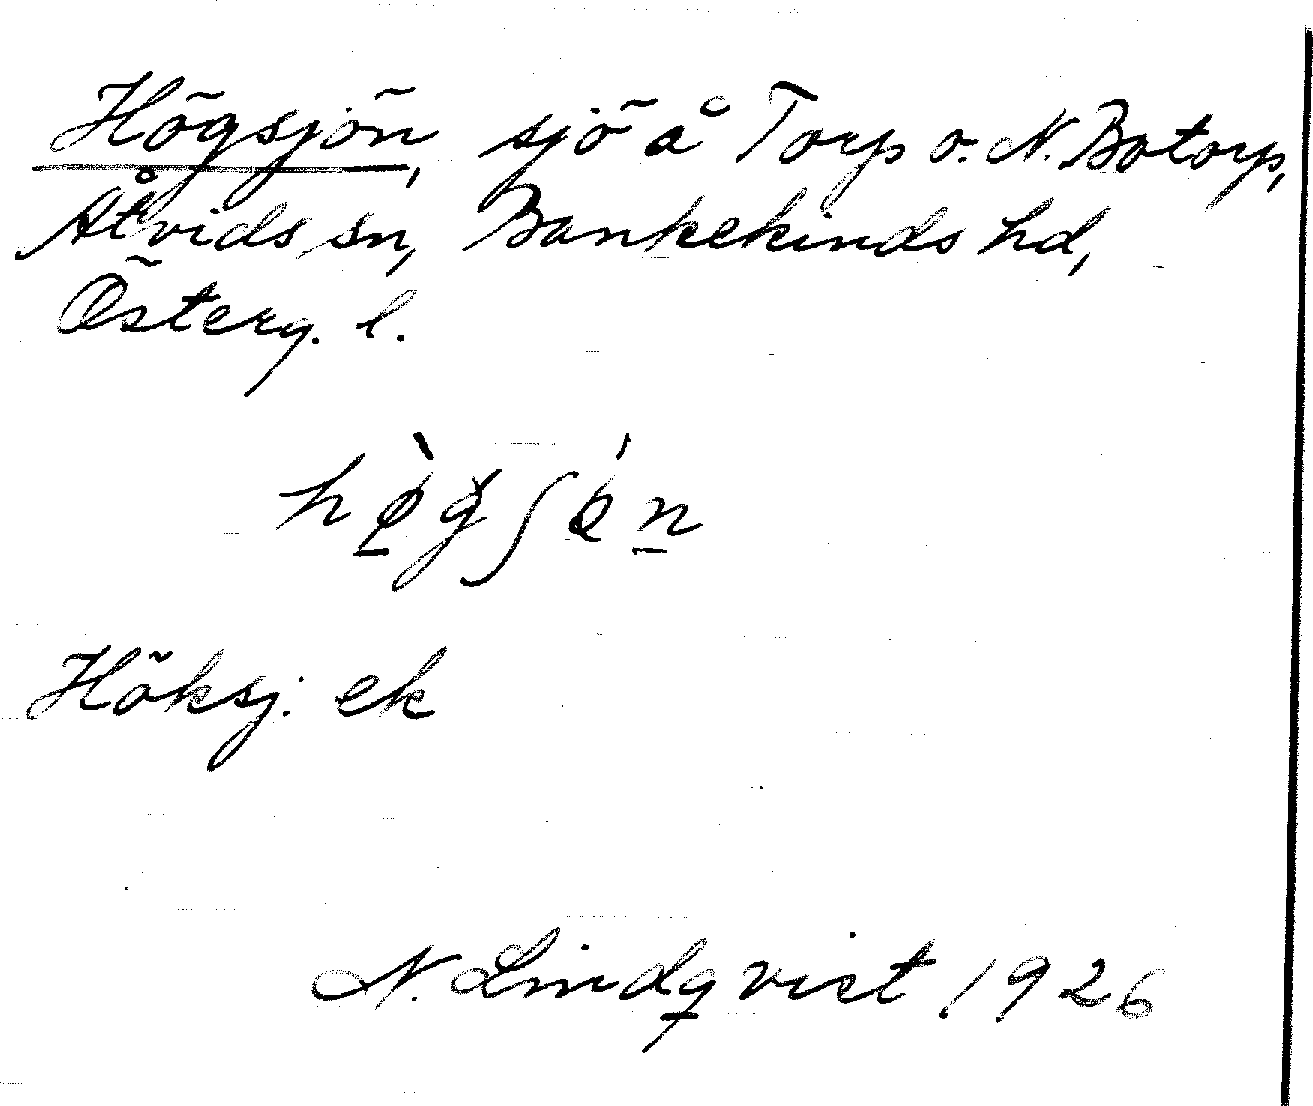 Högsjön, sjö å Torp o. N. Botorp,
Åtvids sn, Bankekinds hd,
Österg. l.
Höksj. ek
N. Lindqvist 1926